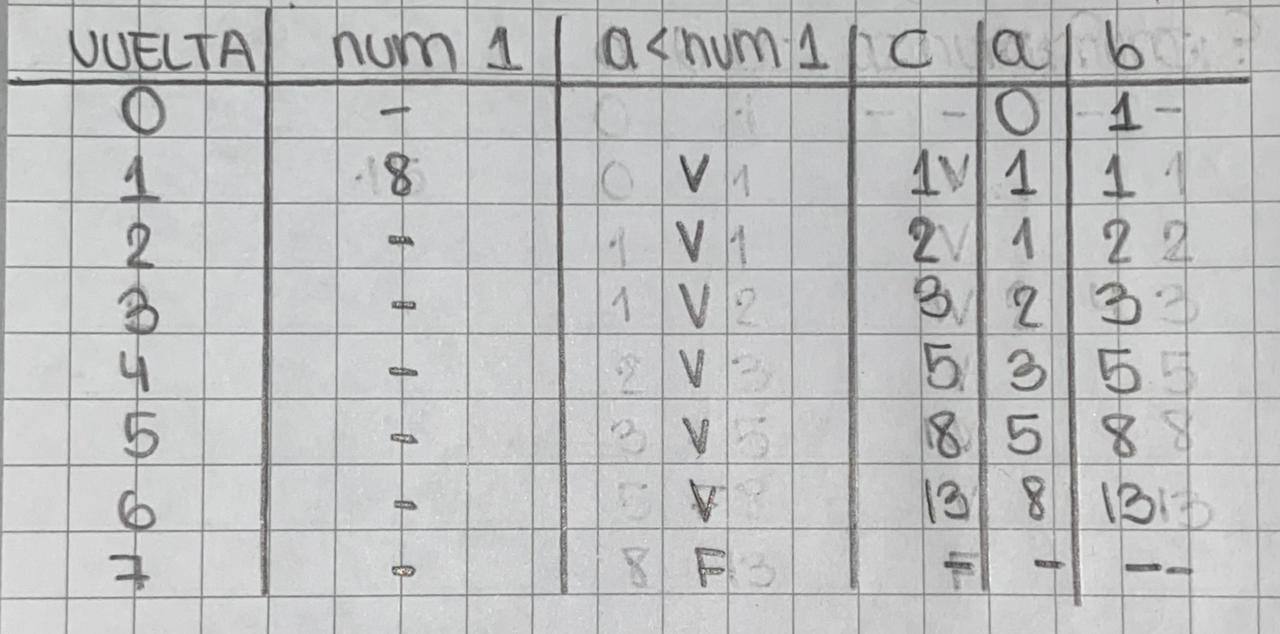 VUELTA num 1 a<num 1 c a b
0 - 0 1
1 8 V 1 1 1
2 - V 2 1 2
3 - V 3 2 3
4 - V 5 3 5
5 - V 8 5 8
6 - V 13 8 13
7 - F - - -